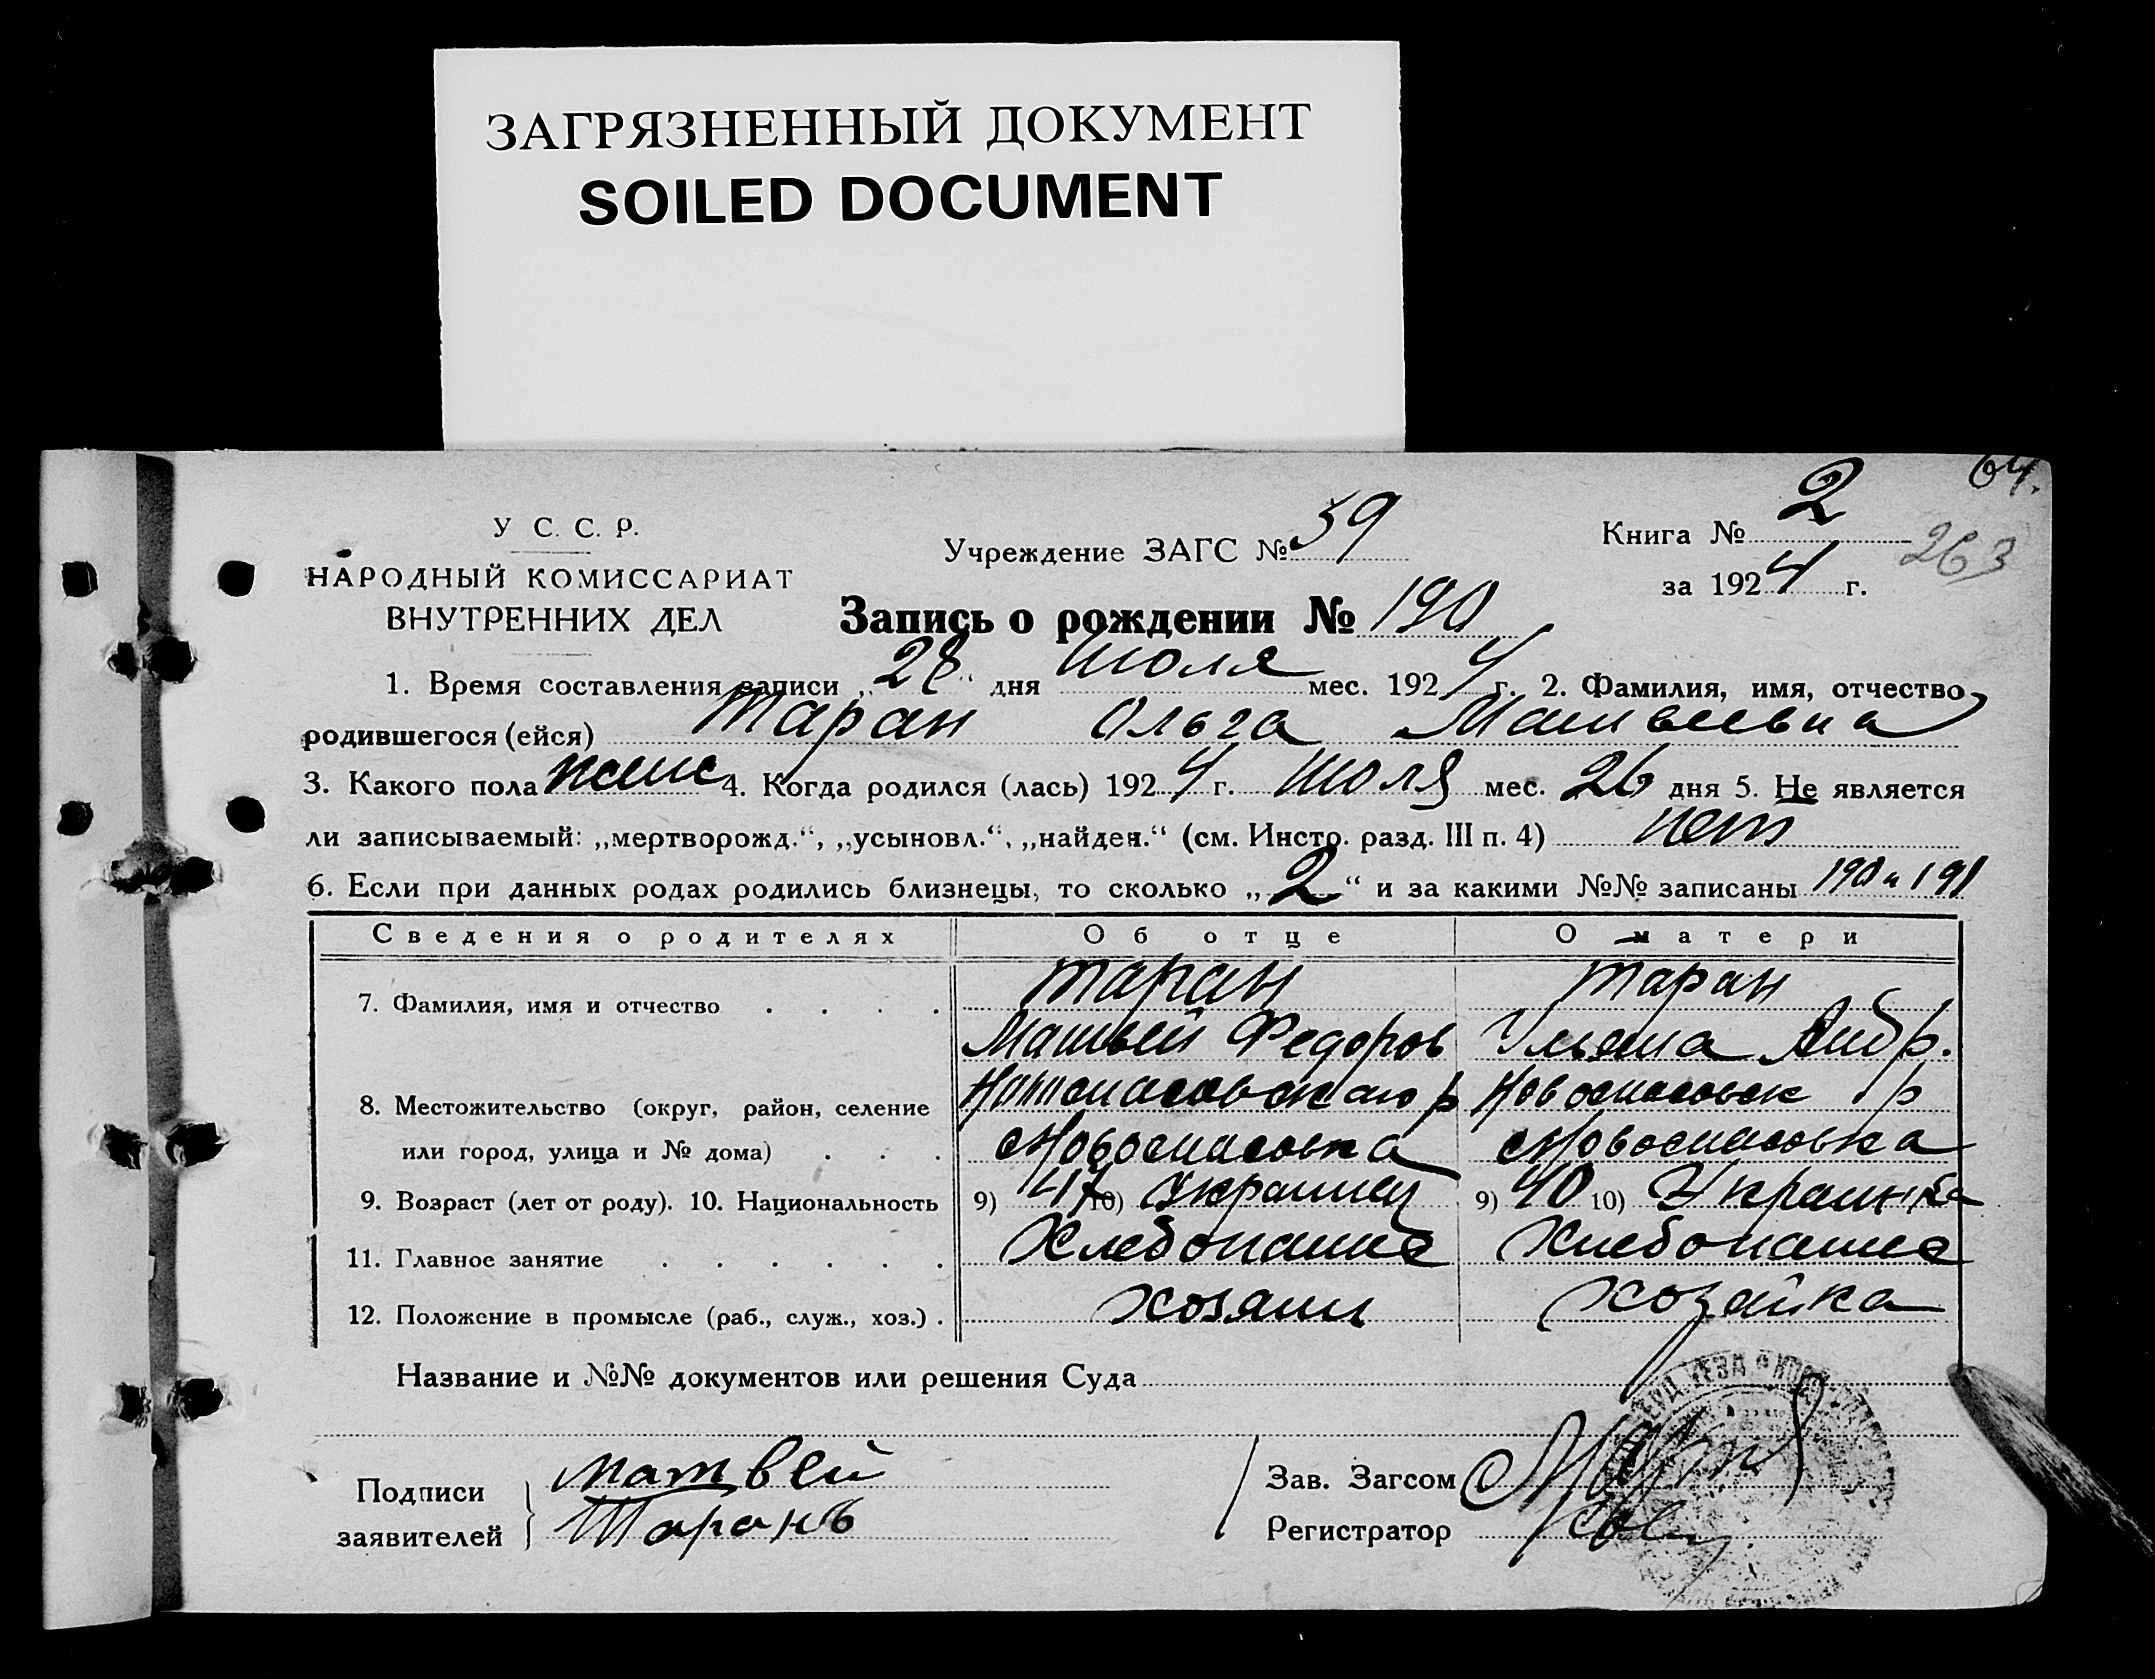 ЗАГРЯЗНЕННЫЙ ДОКУМЕНТ
SOILED DOCUMENT
64.
У С. С. Р.
НАРОДНЫЙ КОМИССАРИАТ
ВНУТРЕННИХ ДЕЛ
Учреждение ЗАГС № 59
Книга № 2
за 1924 г.
263
Запись о рождении № 190
1. Время составления записи „28“ дня Июля мес. 1924 г. 2. Фамилия, имя, отчество
родившегося (ейся) Таран Ольга Матвеевна
3. Какого пола женс 4. Когда родился (лась) 1924 г. Июля мес. 26 дня 5. Не является
ли записываемый: „мертворожд.“, „усыновл.“, „найден.“ (см. Инстр. разд. III п. 4) нет
6. Если при данных родах родились близнецы, то сколько „2“ и за какими №№ записаны 190 и 191
Сведения о родителях Об отце О матери
7. Фамилия, имя и отчество Таран Таран
Матвей Федоров Ульяна Андр.
8. Местожительство (округ, район, селение Новоспасовск р
или город, улица и № дома) Новоспасовка Новоспасовка
9. Возраст (лет от роду). 10. Национальность 9) 10) Украинец 9) 40 10) Украинка
11. Главное занятие Хлебопашес Хлебопашес
12. Положение в промысле (раб., служ., хоз.) хозяин хозяйка
Название и №№ документов или решения Суда
Подписи заявителей Матвей
Таранъ
Зав. Загсом
Регистратор